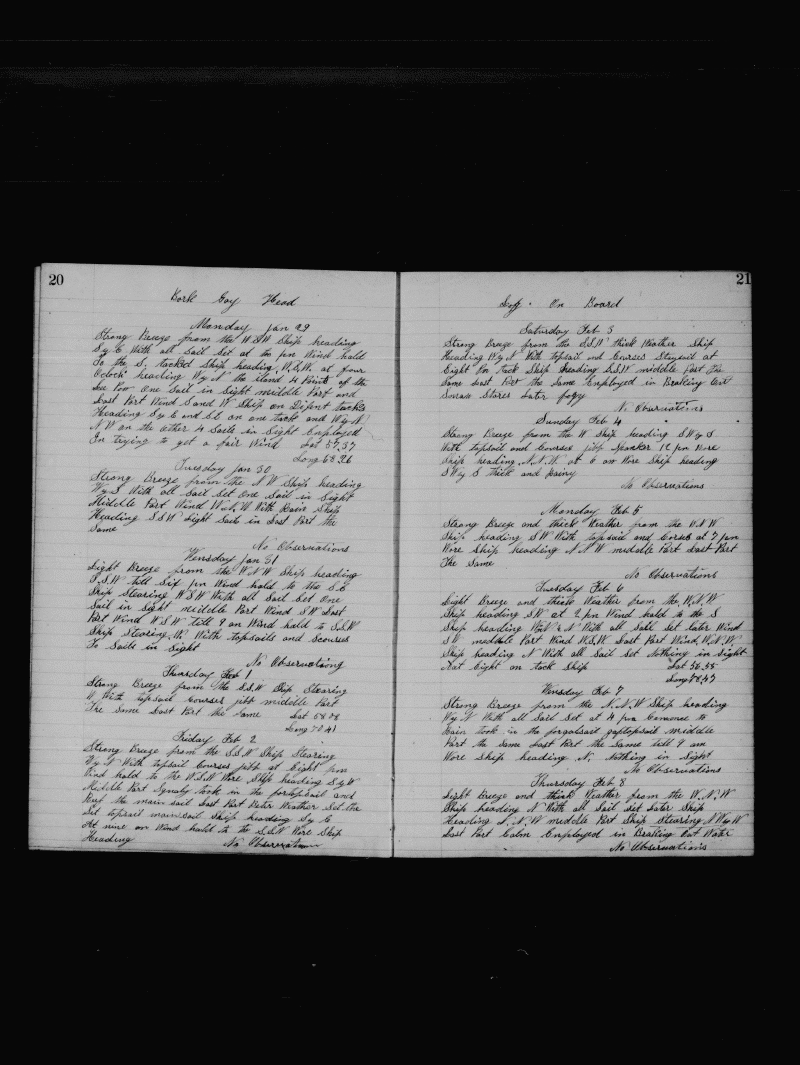 20
Bark Gay Head
Monday Jan 29
Strong Breeze from the W.S.W Ship heading
S by E With all Sail Set at pm Wind hald
To the S. tacked Ship heading W.S.W. at four
Oclock heading W by N the Land 4 Points of the
Lee Bow One Sail in Sight middle Part and
Last Part Wind S and W Ship on Difent tacks
Heading S by E and on one tack and W by N
N W on the other 4 Sails in Sight Employed
In trying to get a fair Wind Lat 57.57
Long 68.26
Tuesday Jan 30
Strong Breeze from the N W Ship heading
W by S With all Sail Set One Sail in Sight
Middle Part Wind W.N.W. With Rain Ship
Heading S.S.W Eight Sails in Last Part the
Same
No Observations
Wensday Jan 31
Light Breeze from the W.N.W Ship heading
S.S.W till Six pm Wind hald to the S.E
Ship Stearing W.S.W With all Sail Set One
Sail in Sight middle Part Wind S.W Last
Part Wind W.S.W till 9 am Wind hald to S.S.W
Ship Stearing W. With topsails and courses
To Sails in Sight
No Observations
Thursday Feb 1
Strong Breeze from the S.S.W Ship Stearing
W. With topsail Courses jibb middle Part
The Same Last Part the Same Lat 56 08
Long 70 41
Friday Feb 2
Strong Breeze from the S.S.W Ship Stearing
W by N With topsail Courses jibb at Eight pm
Wind hald to the W.S.W Wore Ship heading S by W
Middle Part Squaly took in the foretopsail and
Reef the main sail Last Part Beter Weather Set the
Set topsail mainsail Ship heading S by E
At nine am Wind hald to the S.S.W Wore Ship
Heading
No Observations
21
On Board
Saturday Feb 3
Strong Breeze from the S.S.W thick Weather Ship
Heading W by N With topsail and Courses Staysail at
Eight Pm tack Ship heading S.S.W middle Part the
Same Last Part the Same Employed in Breaking Out
Small Stores Later fogy
No Observations
Sunday Feb 4
Strong Breeze from the W Ship heading S W by S
With topsail and Courses jibb spanker 12 pm Wore
Ship heading N.N.W. at 6 am Wore Ship heading
S W by S thick and Rainy
No Observations
Monday Feb 5
Strong Breeze and thick Weather from the W.N.W
Ship heading SW With topsail and Corses at 7 pm
Wore Ship heading N.N.W middle Part Last Part
The Same
No Observations
Tuesday Feb 6
Light Breeze and thick Weather from the W.N.W.
Ship heading SW at 2 pm Wind hald to the S
Ship heading W by N With all Sail Set later Wind
S.W. middle Part Wind W.S.W Last Part Wind W.N.W.
Ship heading N With all Sail Set Nothing in Sight
At Eight am tack Ship Lat 56.55
Long 78.47
Wensday Feb 7
Strong Breeze from the N.N.W Ship heading
W by N With all Sail Set at 4 pm Comence to
Rain took in the forgalsail gaftopsail middle
Part the Same Last Part the Same till 9 am
Wore Ship heading N. Nothing in Sight
No Observations
Thursday Feb 8
Light Breeze and think Weather from the W.N.W
Ship heading N With all Sail Set Later Ship
Heading N.N.W middle Part Ship Stearing N W by W
Last Part Calm Employed in Braking Out Water
No Observations